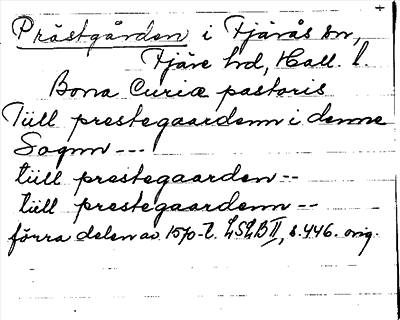 Prästgården i Fjärås sn,
Fjäre hd, Hall. l.
Bona Curiæ pastoris
Tiill prestegaardenn i denne
Sognn ---
tiill prestegaarden --
tiill prestegaardenn --
förra delen av 1570-t. LSLB II, s. 446. orig.